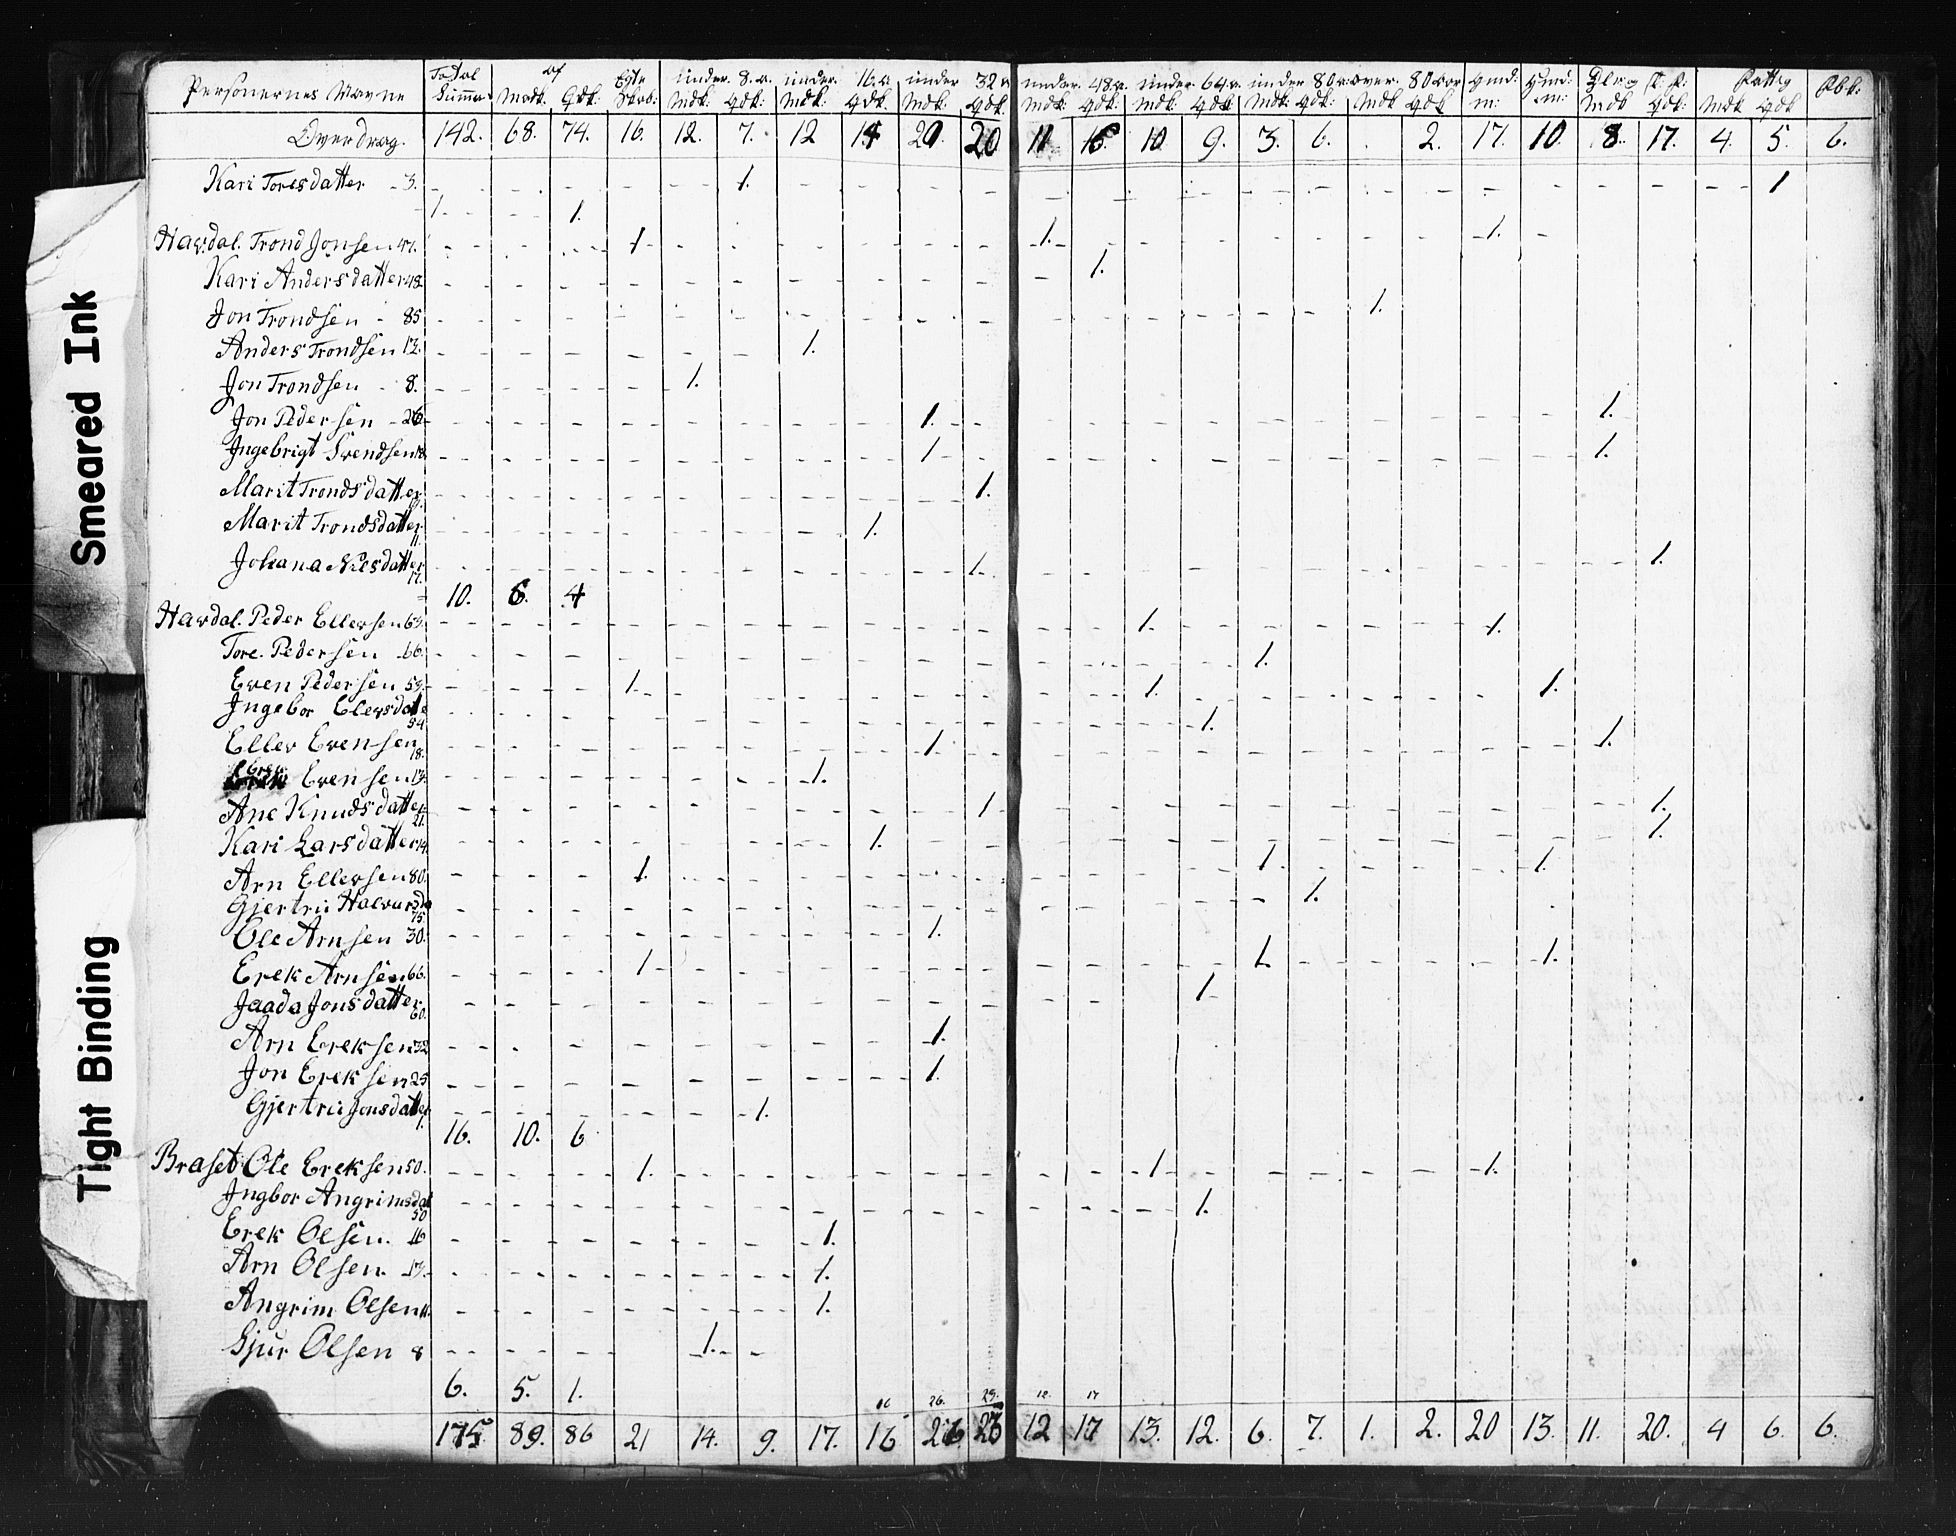 Smeared Ink
Tight Binding
Personernes Navne Total Summa af Mndk: Qdk: Egte under 8. a. Mdk: qdk: under 16 a Mdk: qdk: under 32 a Mdk: qdk: under 48 a. Mdk: qdk: under 64 a. Mdk: qdk: under 80 a. Mdk: qdk: over 80 aar Mdk qdk Mdk qdk: Fattig Mdk qdk
Overdrag. 142. 68. 74. 16. 12. 7. 12 20 11 10 9. 3. 6. 2. 17. 10. 8. 17. 4. 5. 6.
Kari Toresdatter - 3. 1. 1
1. 1.
Havdal. Trond Jonsen 47. 1 1. 1.
Kari Andersdatter 48. 1.
Jon Trondsen - 85 1.
Anders Trondsen 13. 1.
Jon Trondsen - 8. 1.
Jon Pedersen - 26 1. 1.
Ingebrigt Svendsen 18 1 1.
Marit Trondsdatter 1.
Marit Trondsdatter 11. 1.
Johana Nilsdatter 17. 1. 1.
10. 6. 4
Havdal. Peder Ellevsen 63. 1. 1.
Tore. Pedersen 66. 1.
Even Pedersen 53. 1. 1. 1.
Ingebor Elevsdatte 54 1.
Ellev Evensen 18. 1. 1.
Evensen 13. 1.
Ane Knudsdatter 21. 1 1.
Kari Larsdatter 14. 1. 1.
Arn Ellevsen 80. 1. 1. 1.
Gjertru Halvorsda 75. 1.
Ole Arnsen 30. 1.
Erek Arnsen 66. 1. 1. 1.
Jaada Jonsdatter 60. 1.
Arn Ereksen 32 1.
Jon Ereksen 25 1.
Gjertru Jonsdatter 1. 1.
16. 10. 6
Braset Ole Ereksen 50. 1. 1 1.
Ingbor Angrimsdat 50 1.
Erek Olsen. 16 1.
Arn Olsen. 13. 1.
Angrim Olsen 11. 1.
Gjur Olsen 8 1.
6. 5. 1.
16 26. 23. 12. 17
175. 89. 86 21 14. 9. 17. 16 26 23 12 17 13. 12. 6. 7. 1. 2. 20 13. 11. 20. 4 6. 6.